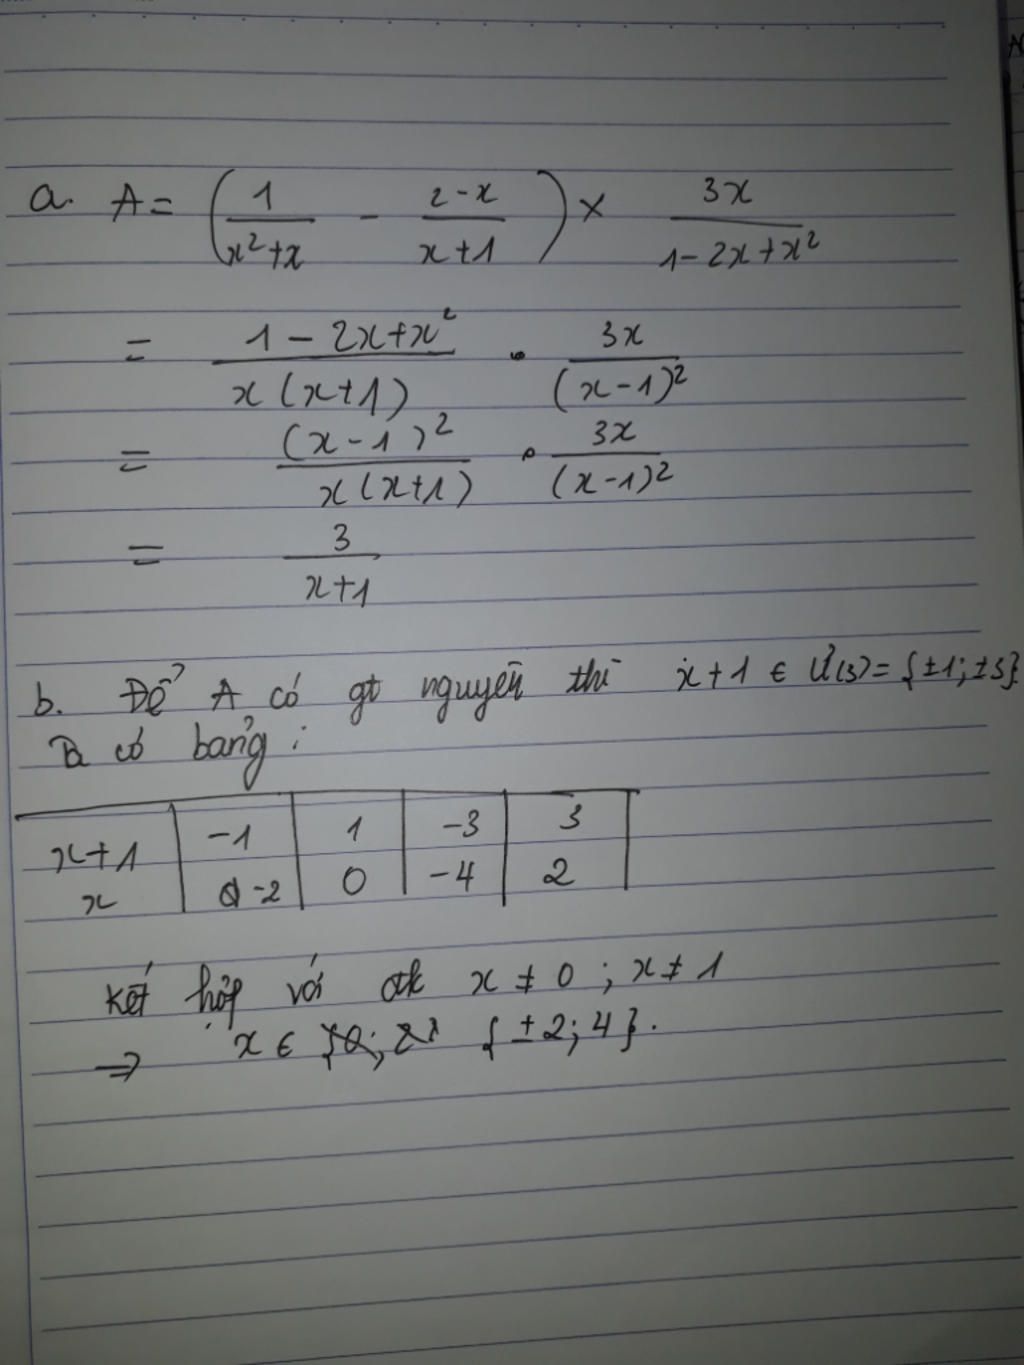 a. A = (1/(x²+x) - (2-x)/(x+1)) × 3x/(1-2x+x²)
= (1-2x+x²)/(x(x+1)) . 3x/(x-1)²
= (x-1)²/(x(x+1)) . 3x/(x-1)²
= 3/(x+1)
b. Để A có gt nguyên thì x+1 ∈ Ư(3) = {±1; ±3}
Ta có bảng:
x+1 -1 1 -3 3
x -2 0 -4 2
Kết hợp với đk x ≠ 0; x ≠ 1
⇒ x ∈ {±2; 4}.